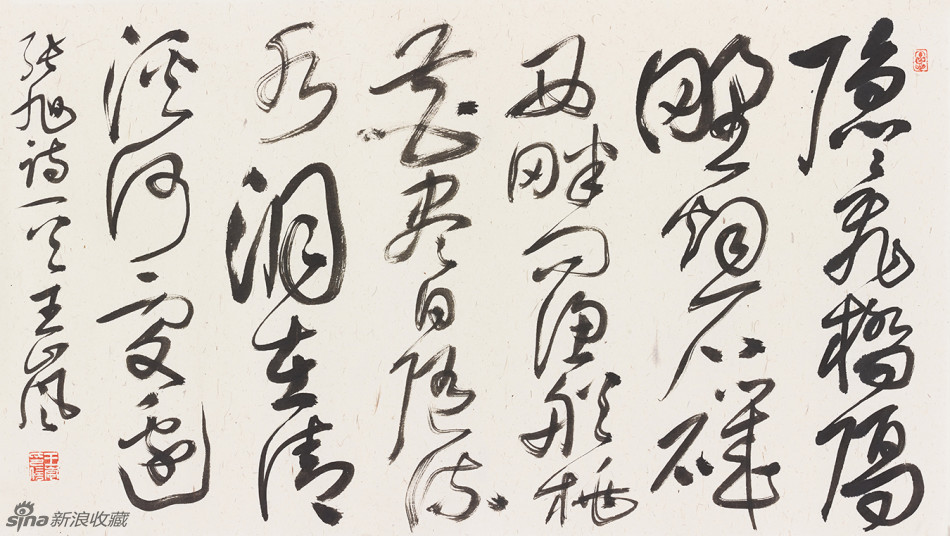 隐隐飛橋隔
野烟石磯
西畔问渔船桃
花尽日随流
水洞在清
溪何處邊
张旭诗一首 王嵐
sina新浪收藏